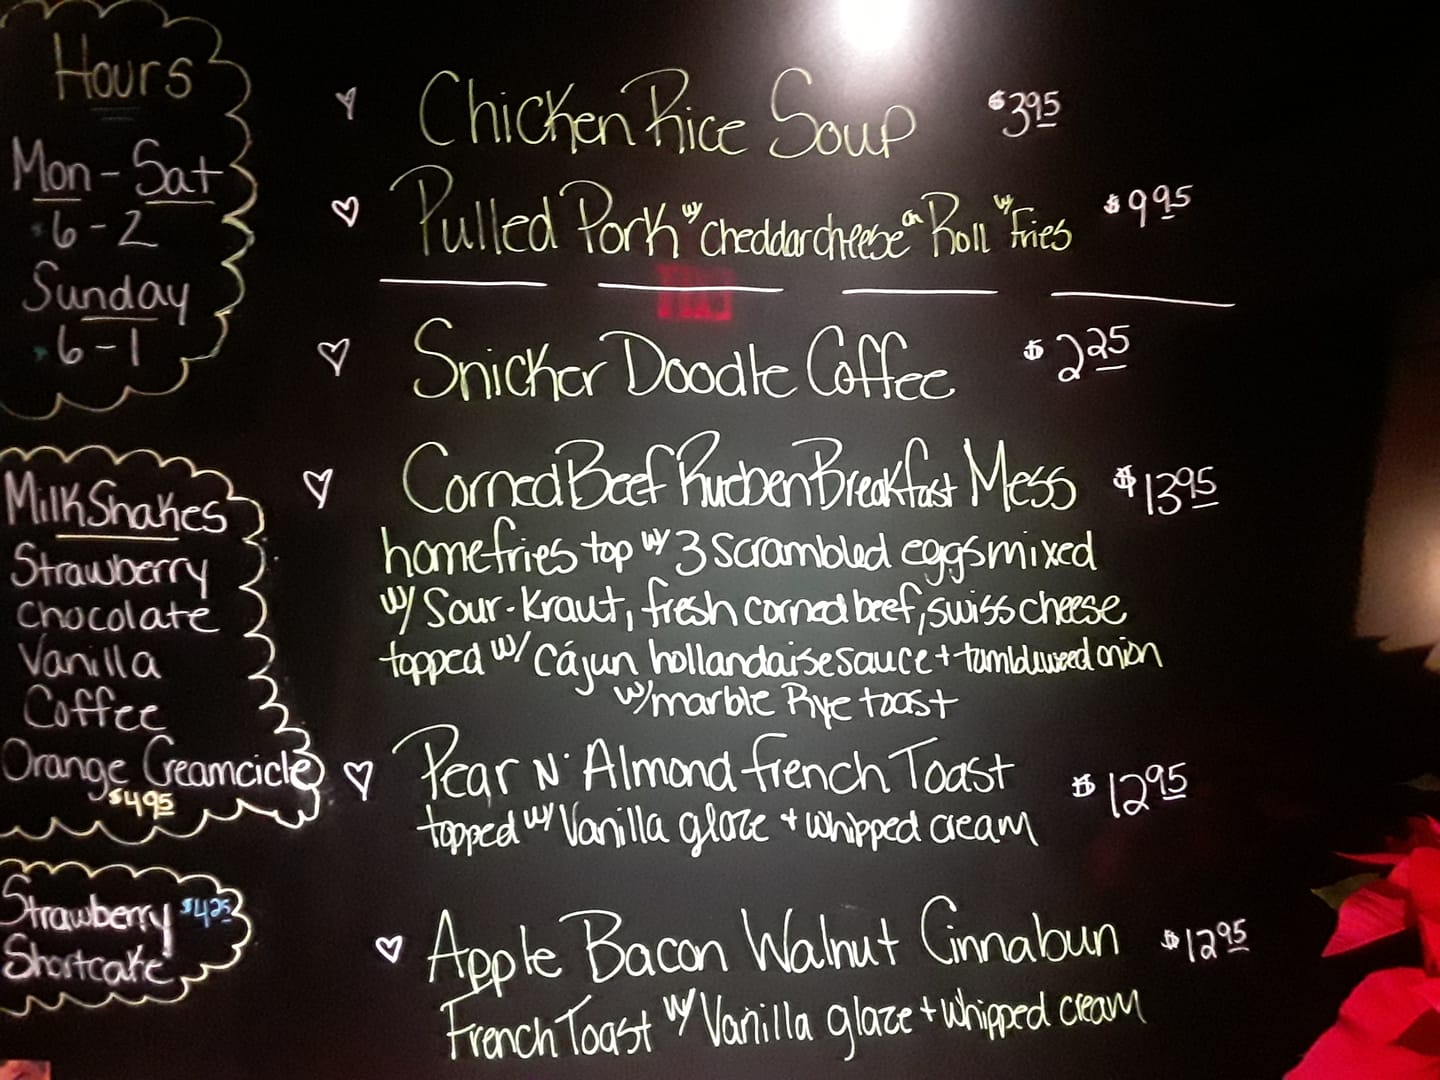 Hours
Mon-Sat
6-2
Sunday
6-1
MilkShakes
Strawberry
Chocolate
Vanilla
Coffee
Orange Creamcicle
$4.95
Strawberry $4.25
Shortcake
Chicken Rice Soup $3.95
Pulled Pork w/ cheddar cheese on Roll w/ Fries $9.95
Snicker Doodle Coffee $2.25
Corned Beef Rueben Breakfast Mess $13.95
homefries top w/ 3 scrambled eggs mixed
w/ Sour-Kraut, fresh corned beef, swiss cheese
topped w/ Cájun hollandaise sauce + tumbleweed onion
w/ marble Rye toast
Pear N' Almond French Toast $12.95
topped w/ Vanilla glaze + whipped cream
Apple Bacon Walnut Cinnabun $12.95
French Toast w/ Vanilla glaze + whipped cream